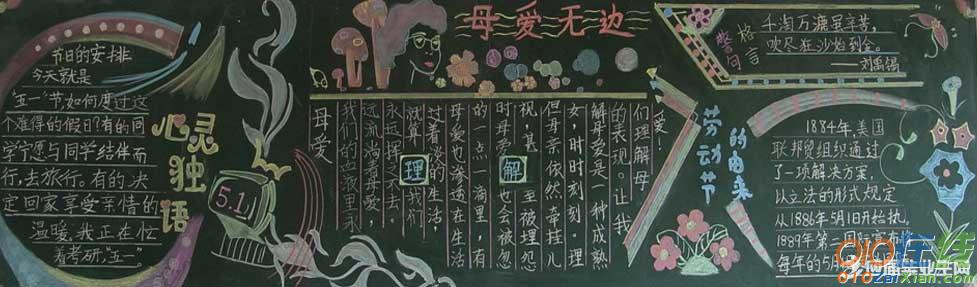 节日的安排
今天就是
"五一"节,如何度过这
个难得的假日?有的同
学宁愿与同学结伴而
行,去旅行。有的决
定回家享受亲情的
温暖,我正在忙
着考研,"五一"。
心灵独语
5.1
母爱无边
母爱
我们的血液里永
远流淌着母爱,
永远挥之不去,
就算我们
过着淡淡的生活,
母爱也渗透在生活
的一点一滴里,有
时母爱也会被忽
视,甚至被埋怨
但母亲依然牵挂儿
女,时时刻刻。理
解母爱是一种成熟
的表现。让我
们理解母
爱!
理解
警句格言
千淘万漉虽辛苦,
吹尽狂沙始到金。
——刘禹锡
劳动节的由来
1884年,美国
联邦贸组织通过
了一项解决方案,
以立法的形式规定
从1886年5月1日开始执,
1889年第一国际宣布将
每年的5月
应届毕业生网
010zaixian.com